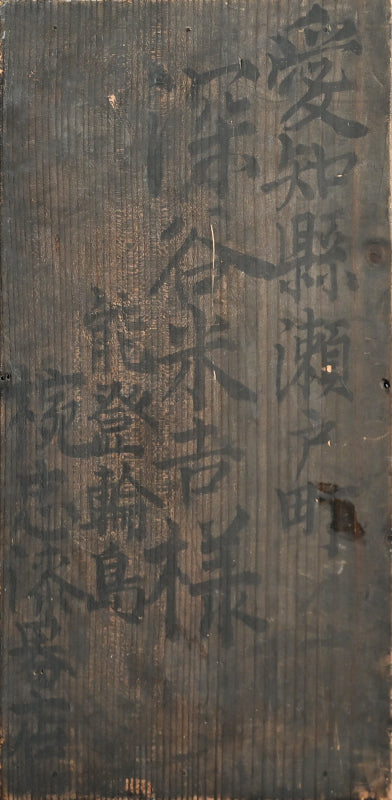 愛知縣瀬戸町
深谷米吉様
能登輪島
椀忠漆器店